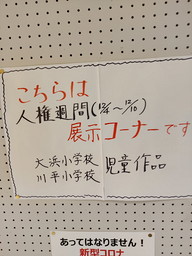 こちらは
人権週間(12/4～12/10)
展示コーナーです
大浜小学校
川平小学校
児童作品
あってはなりません!
新型コロナ